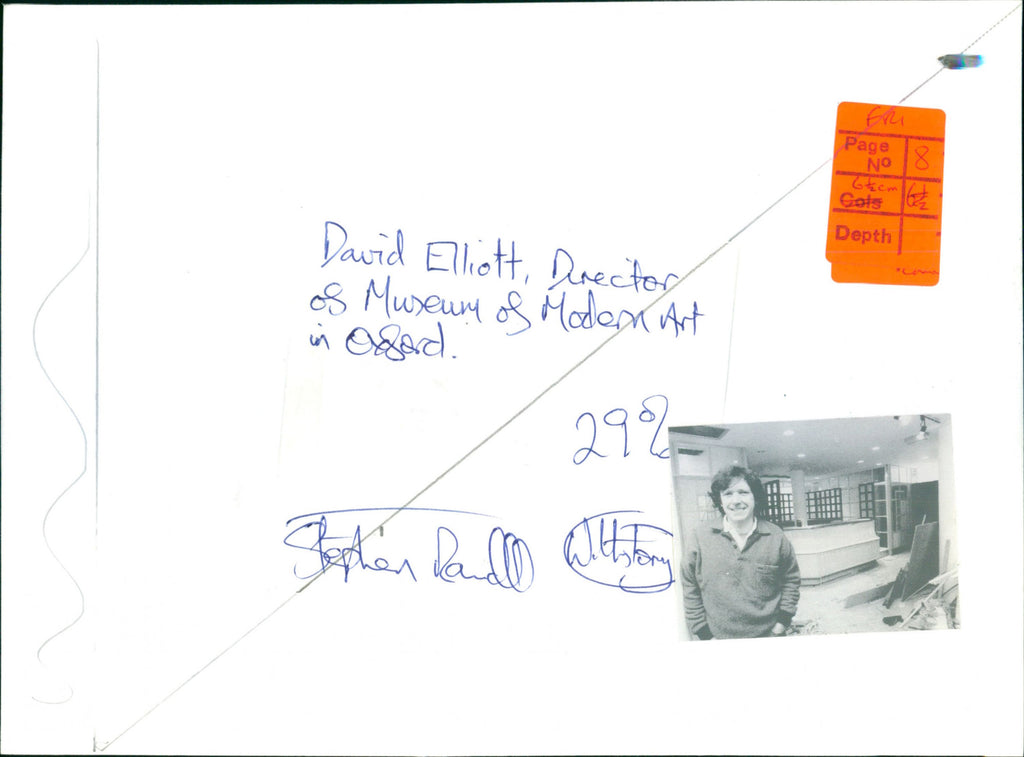 FRI
Page No 8
6½cm
Cols 6½
Depth
David Elliott, Director
of Museum of Modern Art
in Oxford.
29%
Stephen Randll
With story